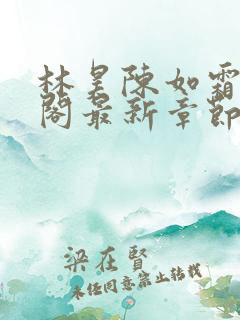 林昊陳如霜
閣最新章節
梁在賢
未經同意禁止轉載